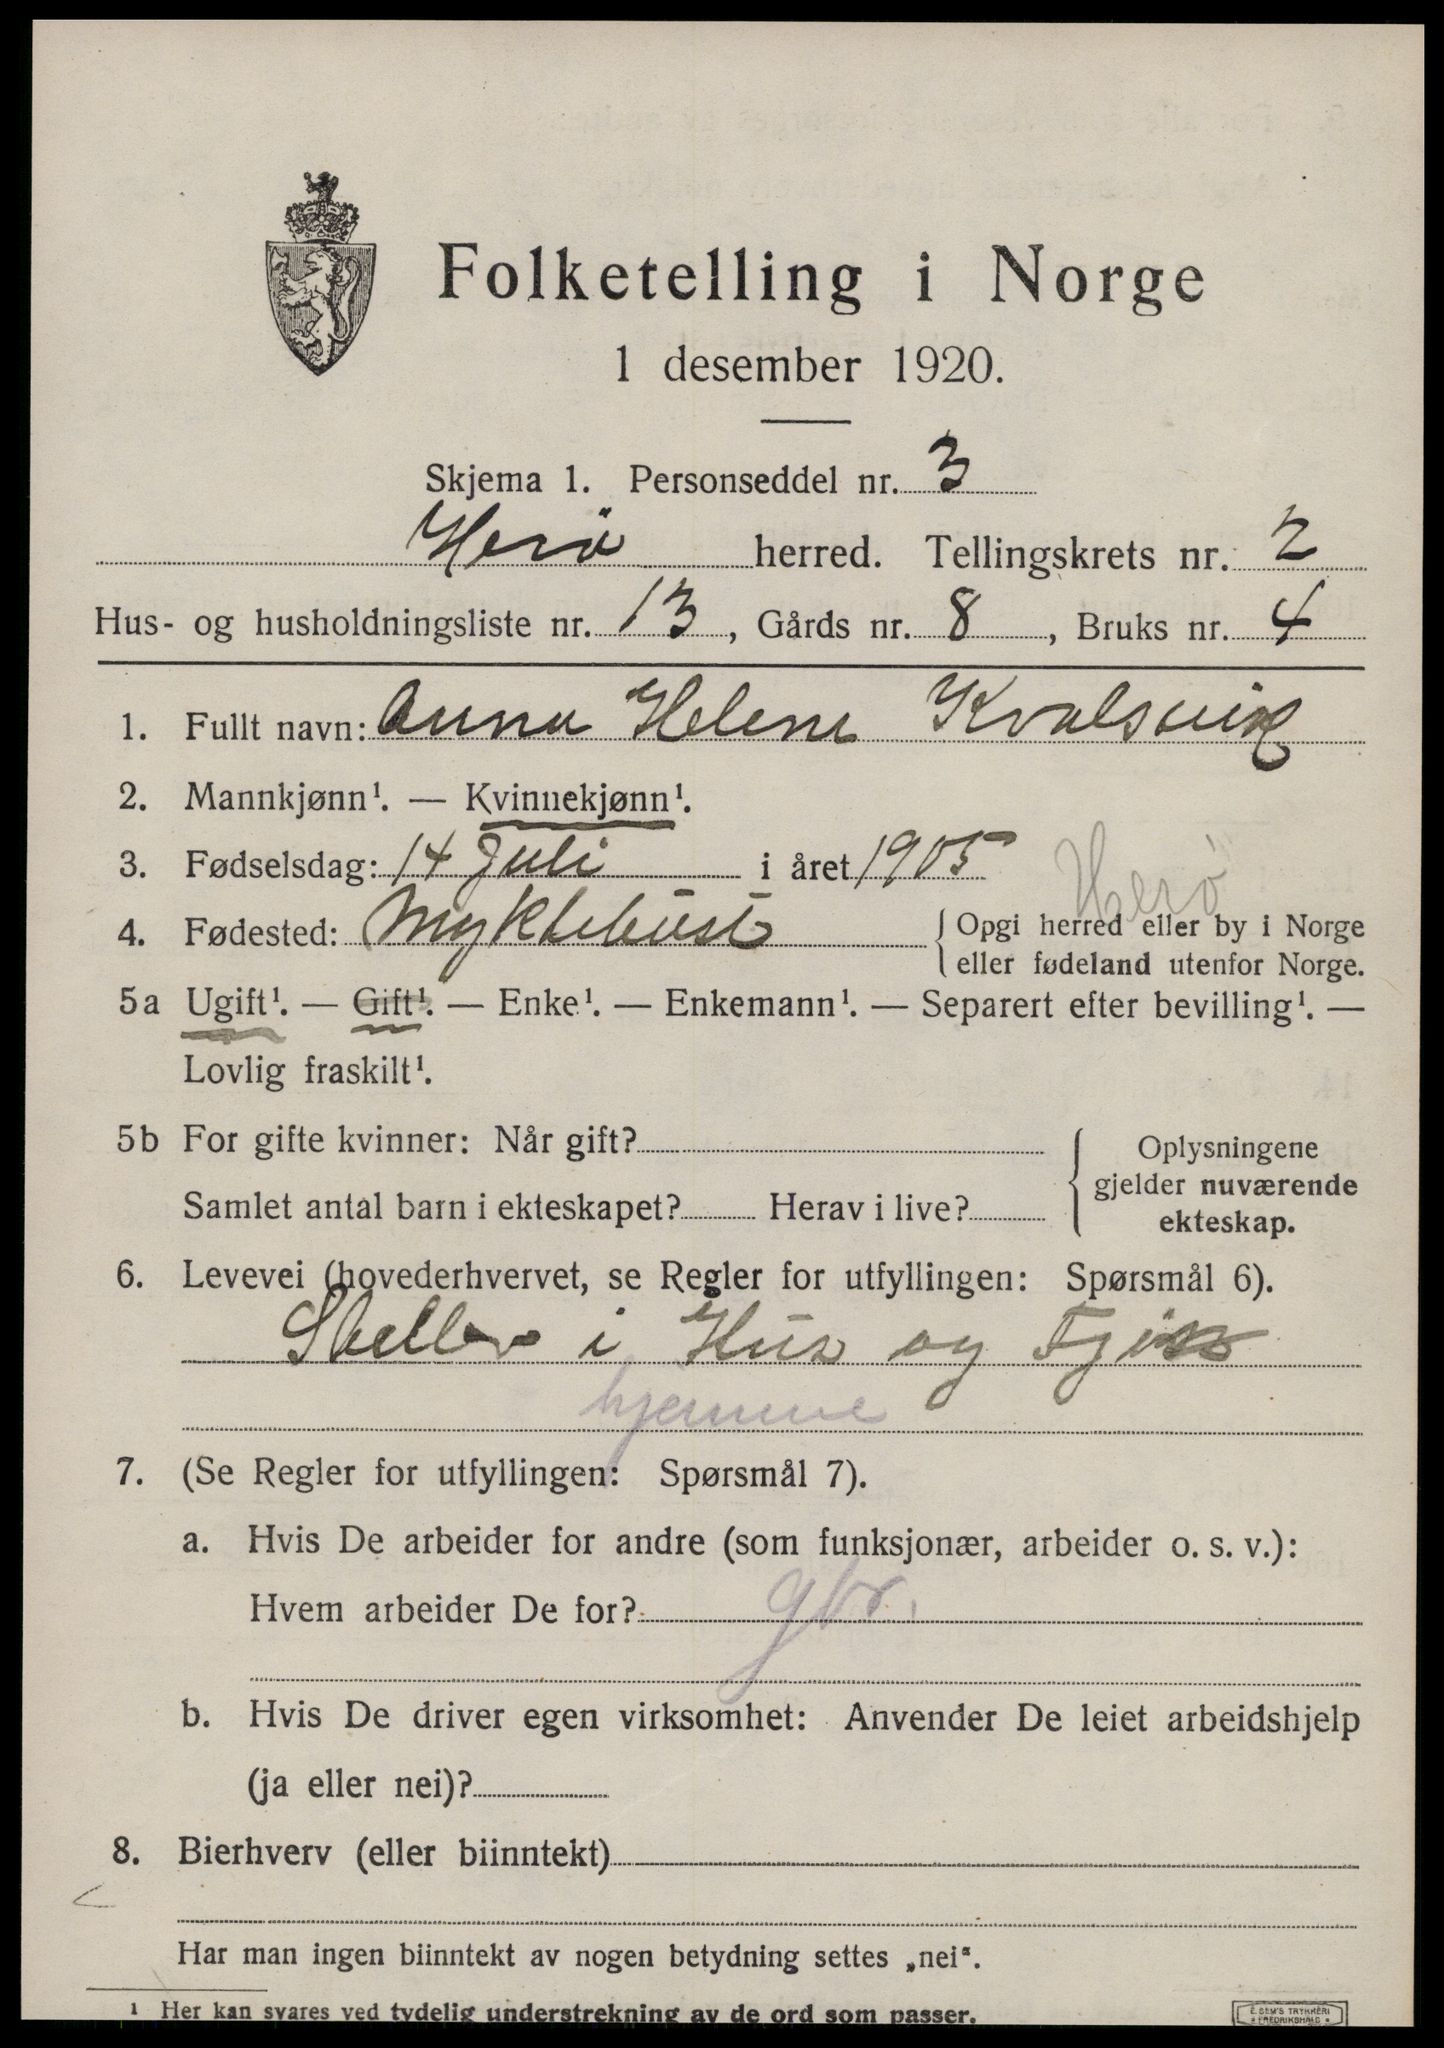 Folketelling i Norge
1 desember 1920.
Skjema 1. Personseddel nr. 3
Herö herred. Tellingskrets nr. 2
Hus- og husholdningsliste nr. 13, Gårds nr. 8, Bruks nr. 4
1. Fullt navn: Anna Helene Kvalsvik
2. Mannkjønn¹. — Kvinnekjønn¹.
3. Fødselsdag: 14 Juli i året 1905
Herø
4. Fødested: Myklebust {Opgi herred eller by i Norge
eller fødeland utenfor Norge.
5a Ugift¹. — Gift¹. — Enke¹. — Enkemann¹. — Separert efter bevilling¹. —
Lovlig fraskilt¹.
5b For gifte kvinner: Når gift?
Samlet antal barn i ekteskapet? Herav i live?
{Oplysningene
gjelder nuværende
ekteskap.
6. Levevei (hovederhvervet, se Regler for utfyllingen: Spørsmål 6).
Steller i Hus og
hjemme
7. (Se Regler for utfyllingen: Spørsmål 7).
a. Hvis De arbeider for andre (som funksjonær, arbeider o. s. v.):
Hvem arbeider De for? gbr.
b. Hvis De driver egen virksomhet: Anvender De leiet arbeidshjelp
(ja eller nei)?
8. Bierhverv (eller biinntekt)
Har man ingen biinntekt av nogen betydning settes „nei“.
¹ Her kan svares ved tydelig understrekning av de ord som passer.
E. SEM'S TRYKKERI
FREDRIKSHALD